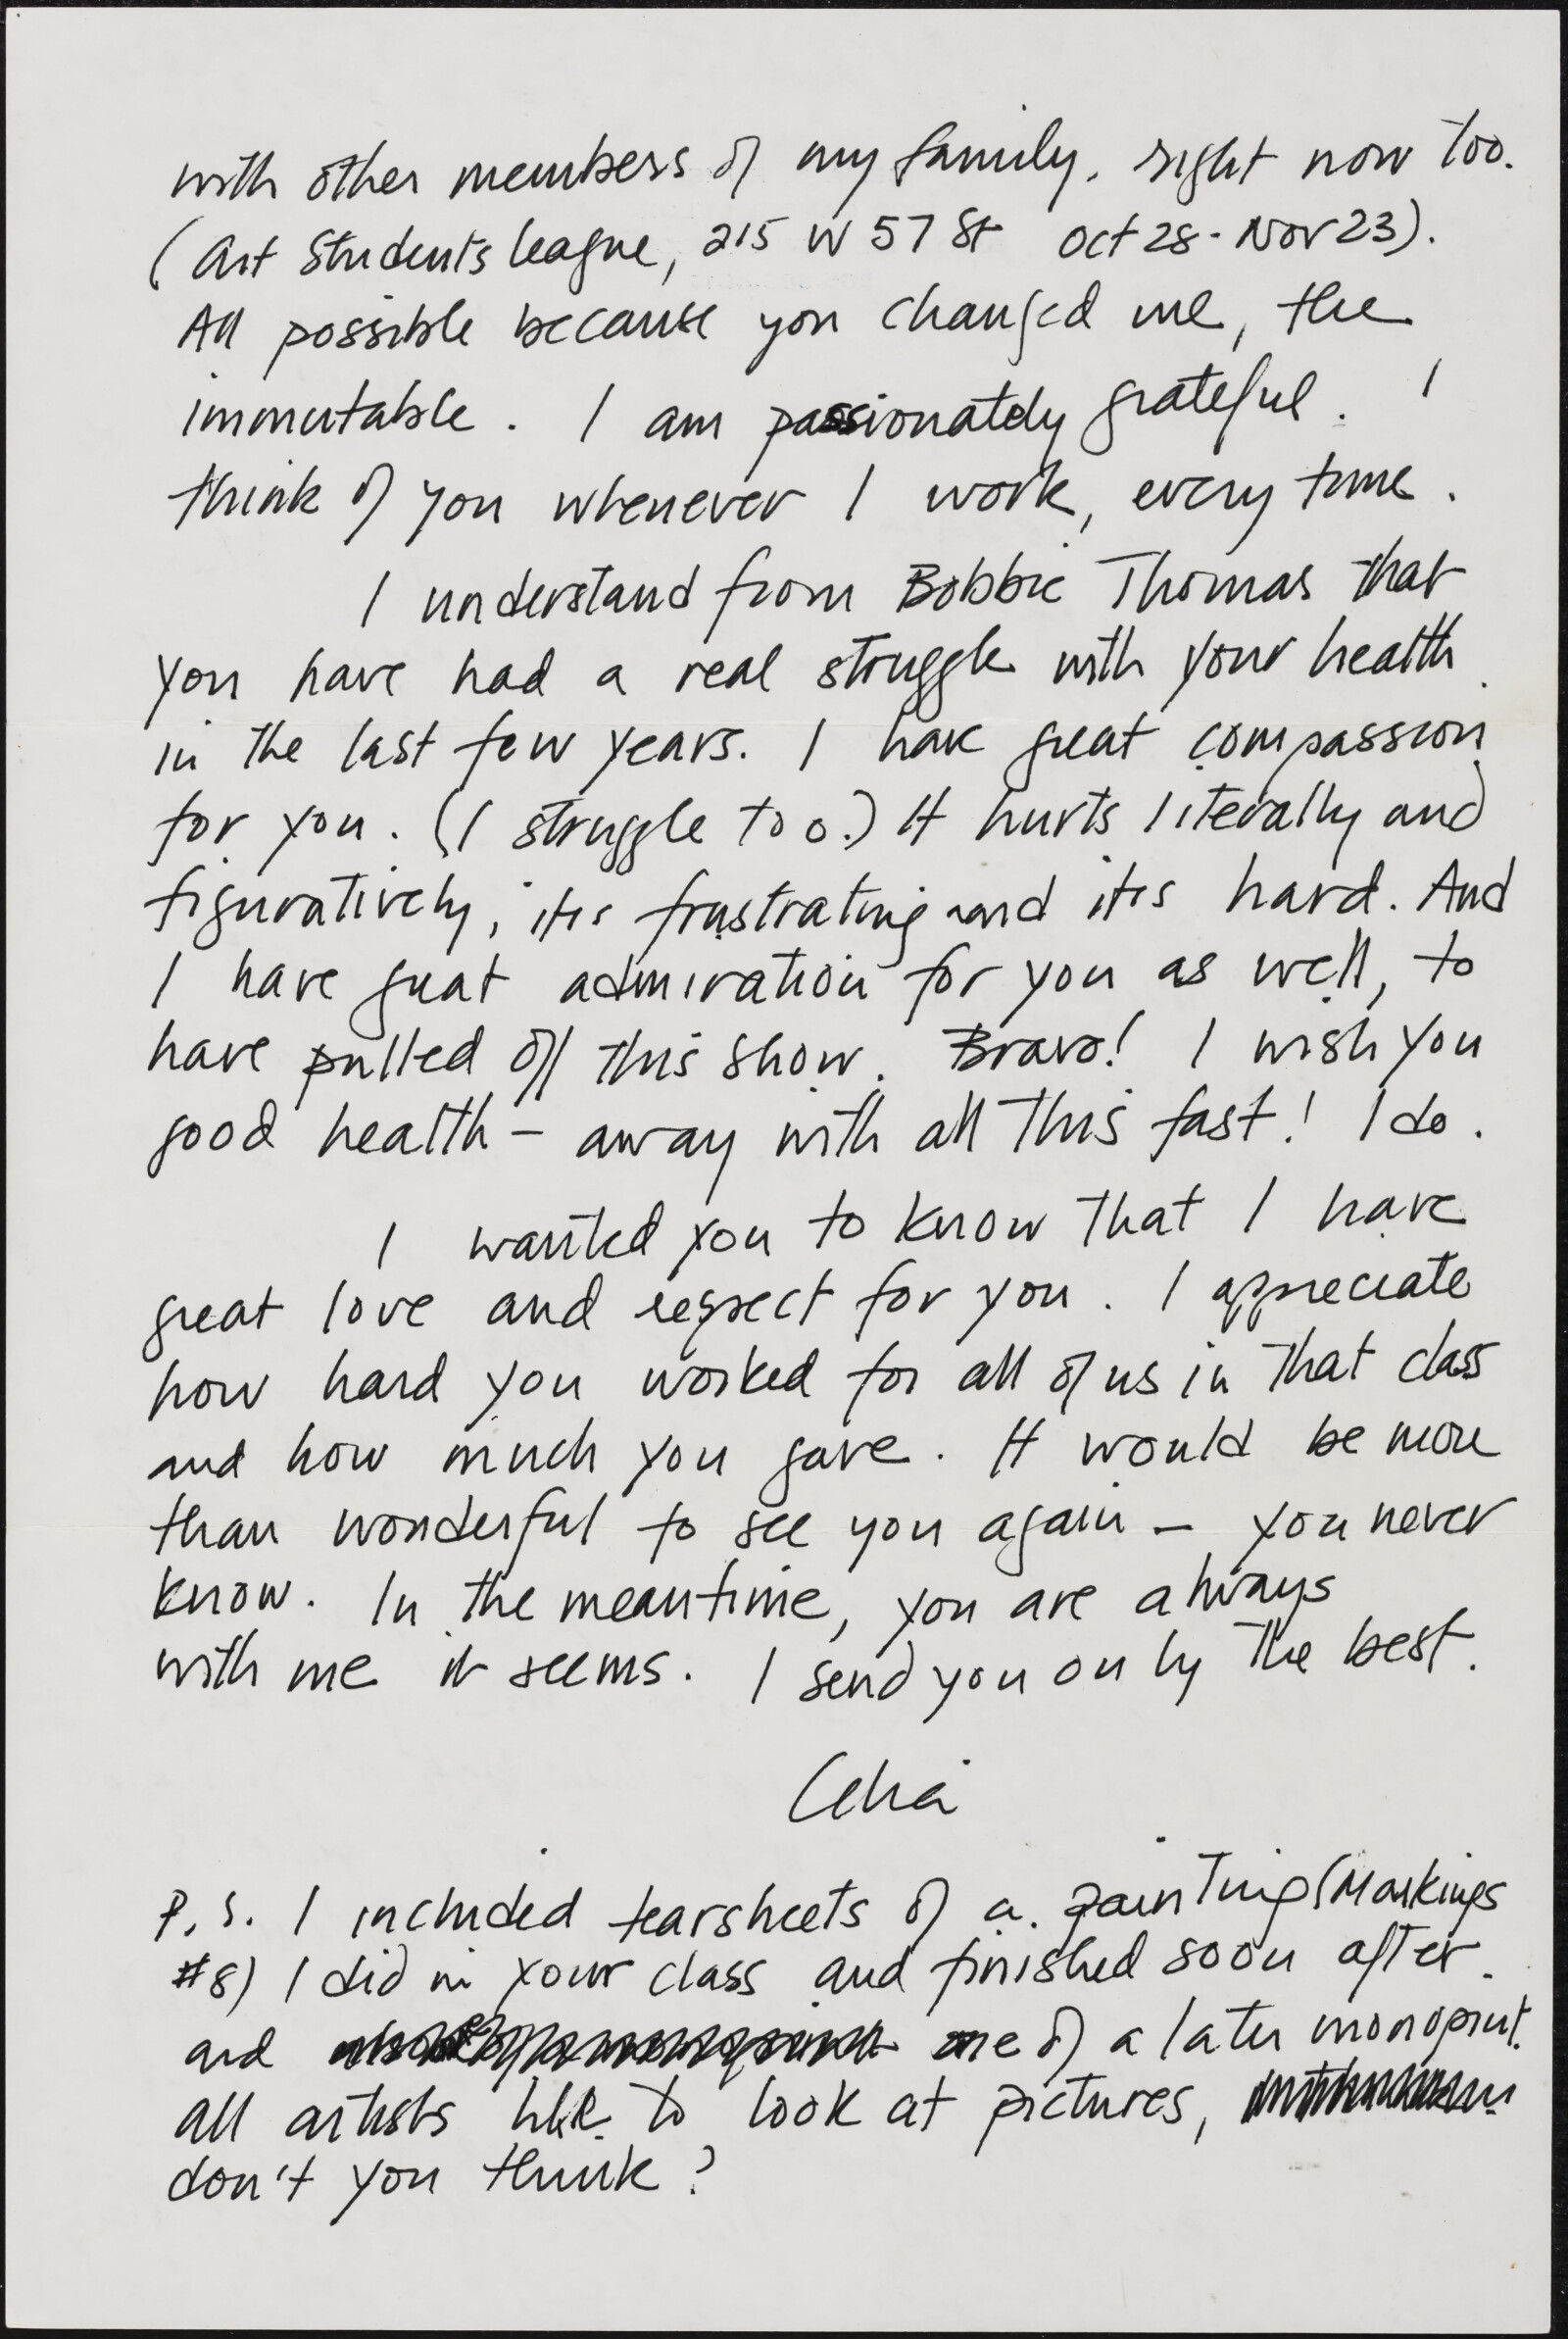 with other members of my family, right now too.
(Art Students League, 215 W 57 St Oct 28 - Nov 23).
All possible because you changed me, the
immutable. I am passionately grateful. I
think of you whenever I work, every time.
I understand from Bobbie Thomas that
you have had a real struggle with your health
in the last few years. I have great compassion
for you. (I struggle too.) It hurts literally and
figuratively, it's frustrating and it's hard. And
I have great admiration for you as well, to
have pulled off this show. Bravo! I wish you
good health - away with all this fast! I do.
I wanted you to know that I have
great love and respect for you. I appreciate
how hard you worked for all of us in that class
and how much you gave. It would be more
than wonderful to see you again - you never
know. In the meantime, you are always
with me it seems. I send you only the best.
Celia
P.S. I included tearsheets of a painting (Markings
#8) I did in your class and finished soon after.
and one of a later monoprint.
all artists like to look at pictures,
don't you think?